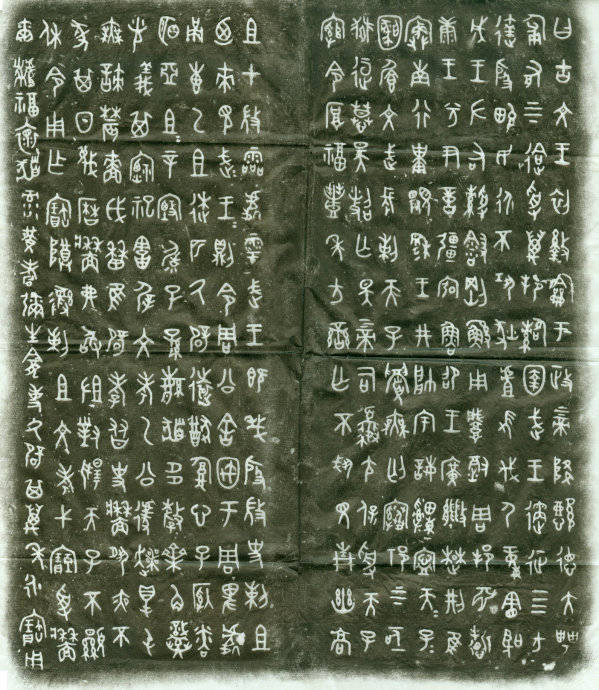 曰古文王初盭龢于政上帝降懿德大甹
匍有上下迨受萬邦𩁹圉武王遹征四方
達殷畯民永不巩狄虘髟伐尸童憲聖
成王左右綬剛鯀用肇徹周邦淵哲
康王兮尹億疆宖魯邵王廣能楚荊隹
寏南行祗顯穆王井帥宇誨申寧天子
天子恪饡文武長剌天子眉無匄䌛祁上下
亟𤞷桓慕昊照亡斁上帝司夒尢保受天子
綰令厚福豐年方蠻亡不𢦚見青幽高
且才微霝處雩武王既𢦏殷微史剌且
迺來見武王則令周公舍宇于周卑處甬
叀乙且逨匹厥辟遠猷腹心子納粦
明亞且且辛毓子孫繁祓多釐齊角熾
光義其禋祀害屖文考乙公遽爽得屯
無諫農穡戉曆隹辟孝友史墻夙夜不
㒸其日蔑曆墻弗敢沮對揚天子不顯
休令用乍寶尊彝剌且文考弋貯受墻
爾祜福懷祓祿黃耇彌生龕事厥辟其萬年永寶用